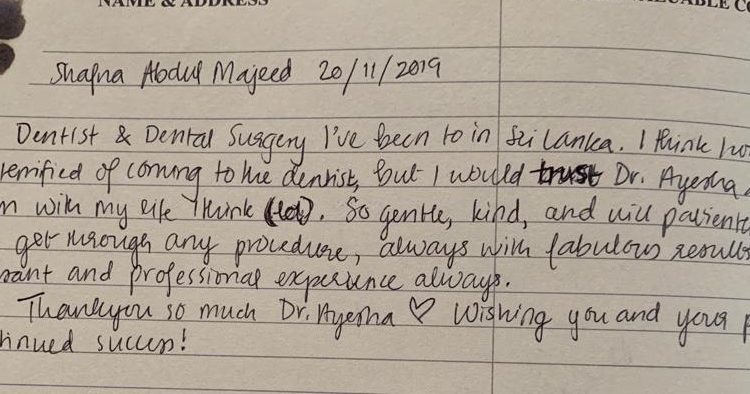 NAME & ADDRESS
Shafna Abdul Majeed 20/11/2019
Dentist & Dental Surgery I've been to in Sri Lanka. I think
terrified of coming to the dentist, but I would trust Dr. Ayesha
with my life I think (lol). So gentle, kind, and will patiently
get through any procedure, always with fabulous results
and professional experience always.
Thankyou so much Dr. Ayesha ♡ Wishing you and your
tinued success!